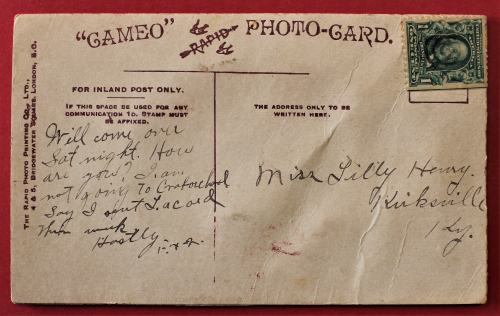 "CAMEO" RAPID PHOTO-CARD.
FOR INLAND POST ONLY.
IF THIS SPACE BE USED FOR ANY
COMMUNICATION 1D. STAMP MUST
BE AFFIXED.
THE ADDRESS ONLY TO BE
WRITTEN HERE.
THE RAPID PHOTO PRINTING CO., LTD.,
4 & 5, BRIDGEWATER SQUARE, LONDON, E.C.
Will come over
Sat night. How
are you? I am
not going to
Say I sent a card
this week
Hastily
Miss Lilly Henry.
Kirksville
Ky.